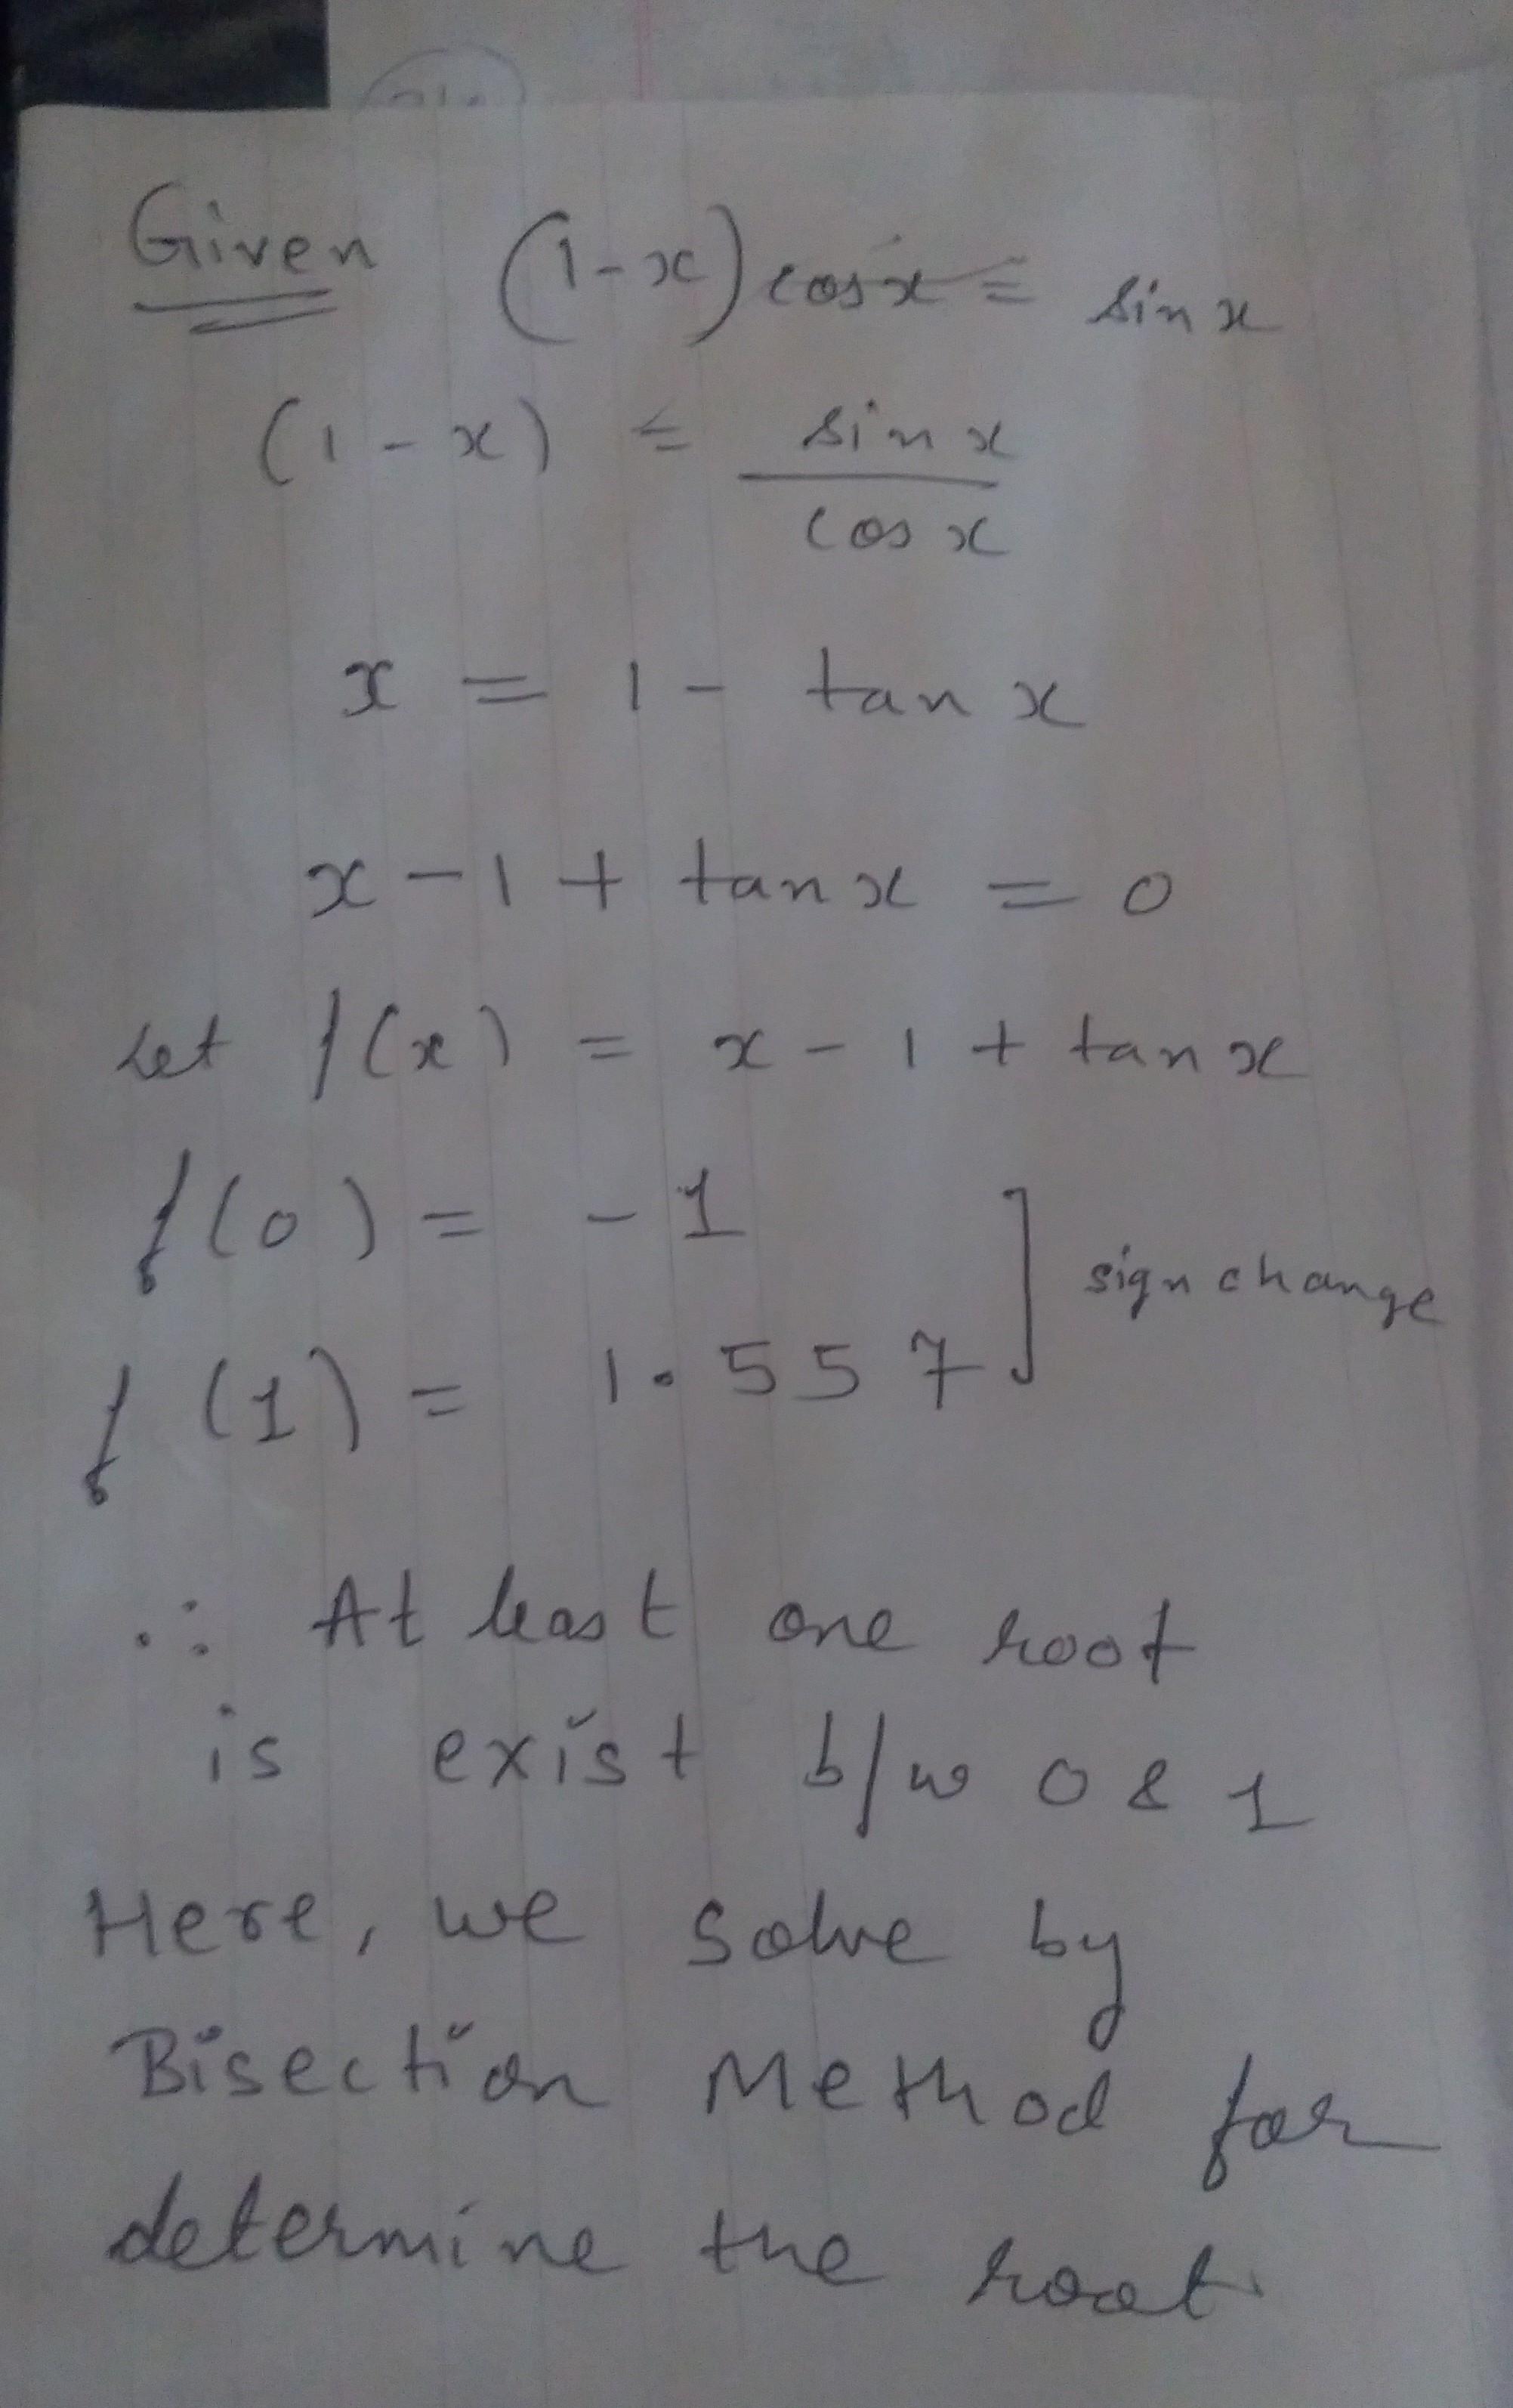 Given (1-x) cosx = sin x
(1-x) = sin x / cos x
x = 1 - tan x
x - 1 + tan x = 0
Let f(x) = x - 1 + tan x
f(0) = - 1
sign change
f(1) = 1.557
∴ At least one root
is exist b/w 0 & 1
Here, we solve by
Bisection Method for
determine the root.